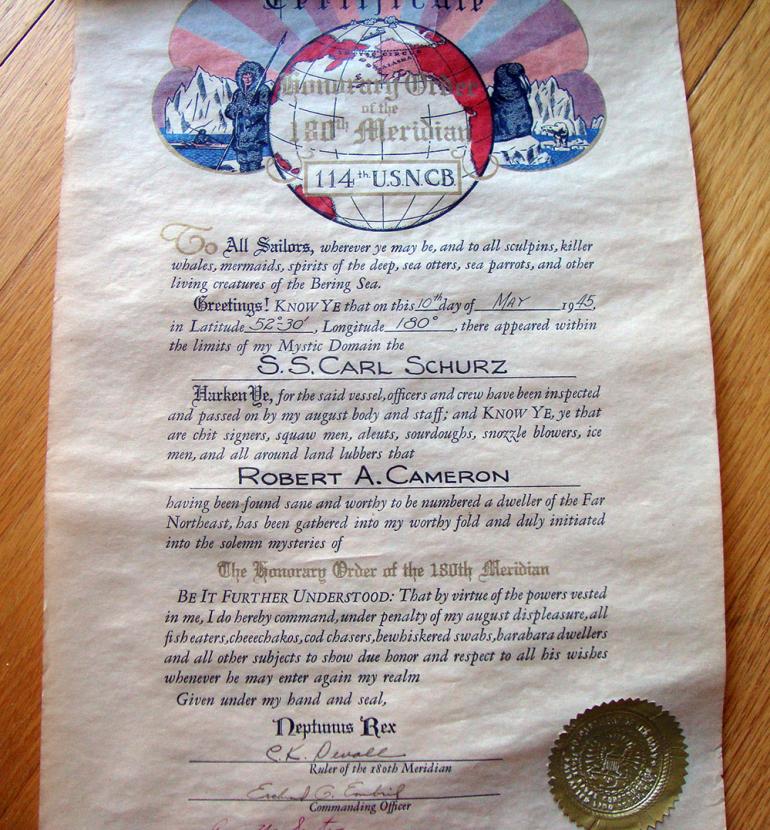 Certificate
ARCTIC CIRCLE
ALASKA
Honorary Order
of the
180th Meridian
114th U.S.N.C.B.
To All Sailors, wherever ye may be, and to all sculpins, killer
whales, mermaids, spirits of the deep, sea otters, sea parrots, and other
living creatures of the Bering Sea.
Greetings! KNOW YE that on this 10th day of MAY 1945,
in Latitude 52°30', Longitude 180°, there appeared within
the limits of my Mystic Domain the
S.S. CARL SCHURZ
Harken Ye, for the said vessel, officers and crew have been inspected
and passed on by my august body and staff; and KNOW YE, ye that
are chit signers, squaw men, aleuts, sourdoughs, snozzle blowers, ice
men, and all around land lubbers that
ROBERT A. CAMERON
having been found sane and worthy to be numbered a dweller of the Far
Northeast, has been gathered into my worthy fold and duly initiated
into the solemn mysteries of
The Honorary Order of the 180th Meridian
BE IT FURTHER UNDERSTOOD: That by virtue of the powers vested
in me, I do hereby command, under penalty of my august displeasure, all
fish eaters, cheeechakos, cod chasers, bewhiskered swabs, barabara dwellers
and all other subjects to show due honor and respect to all his wishes
whenever he may enter again my realm
Given under my hand and seal,
Neptunus Rex
C.K. Devall
Ruler of the 180th Meridian
Commanding Officer